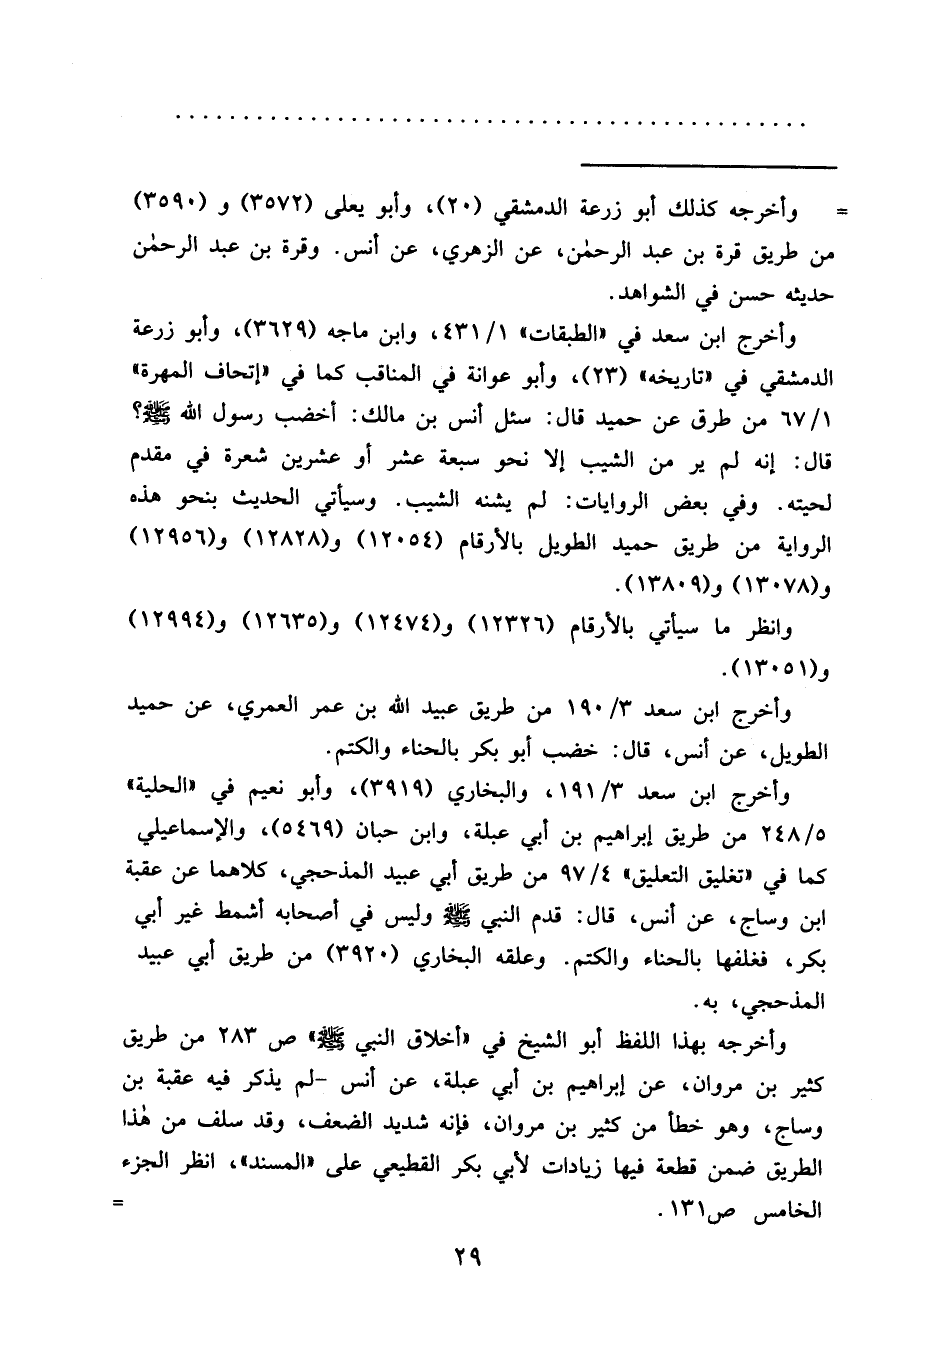 . . . . . . . . . . . . . . . . . . . . . . . . . . . . . . . . . . . . . . . . . . . . . .
= وأخرجه كذلك أبو زرعة الدمشقي (٢٠)، وأبو يعلى (٣٥٧٢) و (٣٥٩٠)
من طريق قرة بن عبد الرحمٰن، عن الزهري، عن أنس. وقرة بن عبد الرحمٰن
حديثه حسن في الشواهد.
وأخرج ابن سعد في «الطبقات» ٤٣١/١، وابن ماجه (٣٦٢٩)، وأبو زرعة
الدمشقي في «تاريخه» (٢٣)، وأبو عوانة في المناقب كما في «إتحاف المهرة»
٦٧/١ من طرق عن حميد قال: سئل أنس بن مالك: أخضب رسول الله ﷺ؟
قال: إنه لم ير من الشيب إلا نحو سبعة عشر أو عشرين شعرة في مقدم
لحيته. وفي بعض الروايات: لم يشنه الشيب. وسيأتي الحديث بنحو هذه
الرواية من طريق حميد الطويل بالأرقام (١٢٠٥٤) و(١٢٨٢٨) و(١٢٩٥٦)
و(١٣٠٧٨) و(١٣٨٠٩).
وانظر ما سيأتي بالأرقام (١٢٣٢٦) و(١٢٤٧٤) و(١٢٦٣٥) و(١٢٩٩٤)
و(١٣٠٥١).
وأخرج ابن سعد ١٩٠/٣ من طريق عبيد الله بن عمر العمري، عن حميد
الطويل، عن أنس، قال: خضب أبو بكر بالحناء والكتم.
وأخرج ابن سعد ١٩١/٣، والبخاري (٣٩١٩)، وأبو نعيم في «الحلية»
٢٤٨/٥ من طريق إبراهيم بن أبي عبلة، وابن حبان (٥٤٦٩)، والإسماعيلي
كما في «تغليق التعليق» ٩٧/٤ من طريق أبي عبيد المذحجي، كلاهما عن عقبة
ابن وساج، عن أنس، قال: قدم النبي ﷺ وليس في أصحابه أشمط غير أبي
بكر، فغلفها بالحناء والكتم. وعلقه البخاري (٣٩٢٠) من طريق أبي عبيد
المذحجي، به.
وأخرجه بهذا اللفظ أبو الشيخ في «أخلاق النبي ﷺ» ص ٢٨٣ من طريق
كثير بن مروان، عن إبراهيم بن أبي عبلة، عن أنس -لم يذكر فيه عقبة بن
وساج، وهو خطأ من كثير بن مروان، فإنه شديد الضعف، وقد سلف من هٰذا
الطريق ضمن قطعة فيها زيادات لأبي بكر القطيعي على «المسند»، انظر الجزء
الخامس ص١٣١. =
٢٩